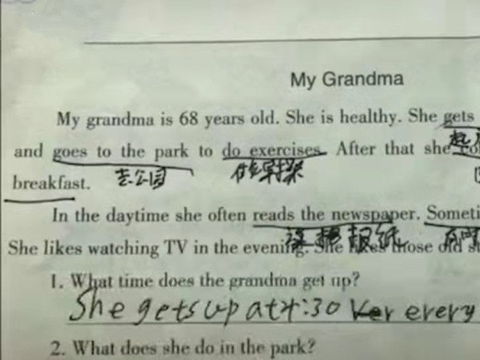 My Grandma
My grandma is 68 years old. She is healthy. She gets
and goes to the park to do exercises. After that she
breakfast. 去公园
In the daytime she often reads the newspaper. Someti
She likes watching TV in the evening. She likes those old s
读 报纸
1. What time does the grandma get up?
She gets up at 4:30 every
2. What does she do in the park?